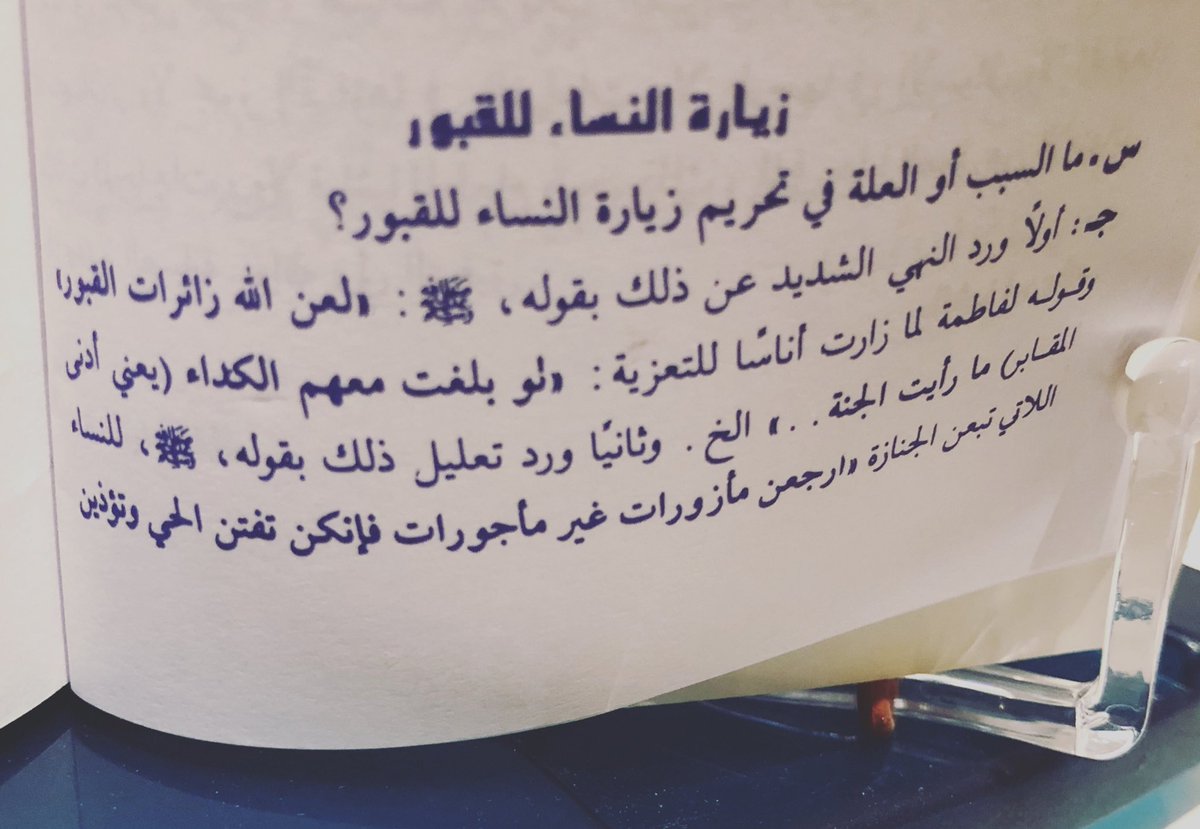 زيارة النساء للقبور
س. ما السبب أو العلة في تحريم زيارة النساء للقبور؟
جـ: أولًا ورد النهي الشديد عن ذلك بقوله، ﷺ: «لعن الله زائرات القبور»
وقوله لفاطمة لما زارت أناسًا للتعزية: «لو بلغت معهم الكداء (يعني أدنى
المقابر) ما رأيت الجنة..» الخ. وثانيًا ورد تعليل ذلك بقوله، ﷺ، للنساء
اللاتي تبعن الجنازة «ارجعن مأزورات غير مأجورات فإنكن تفتن الحي وتؤذين